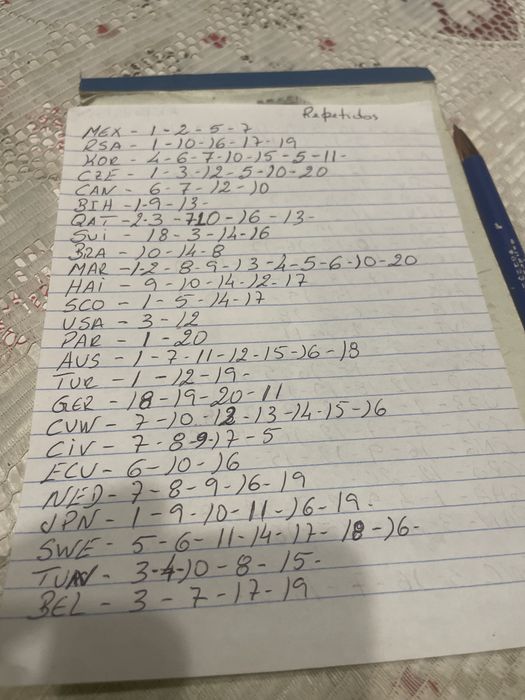 Repetidos
MEX - 1 - 2 - 5 - 7
RSA - 1 - 10 - 16 - 17 - 19
KOR - 4 - 6 - 7 - 10 - 15 - 5 - 11 -
CZE - 1 - 3 - 12 - 5 - 10 - 20
CAN - 6 - 7 - 12 - 10
BIH - 1 - 9 - 13 -
QAT - 2 - 3 - 7 10 - 16 - 13 -
Sui - 18 - 3 - 14 - 16
BRA - 10 - 14 - 8
MAR - 1 - 2 - 8 - 9 - 13 - 4 - 5 - 6 - 10 - 20
HAi - 9 - 10 - 14 - 12 - 17
SCO - 1 - 5 - 14 - 17
USA - 3 - 12
PAR - 1 - 20
AUS - 1 - 7 - 11 - 12 - 15 - 16 - 18
TUR - 1 - 12 - 19 -
GER - 18 - 19 - 20 - 11
CUW - 7 - 10 - 12 - 13 - 14 - 15 - 16
CiV - 7 - 8 - 9 - 17 - 5
ECU - 6 - 10 - 16
NED - 7 - 8 - 9 - 16 - 19
JPN - 1 - 9 - 10 - 11 - 16 - 19 -
SWE - 5 - 6 - 11 - 14 - 17 - 18 - 16 -
TUN - 3 - 4 - 10 - 8 - 15 -
BEL - 3 - 7 - 17 - 19